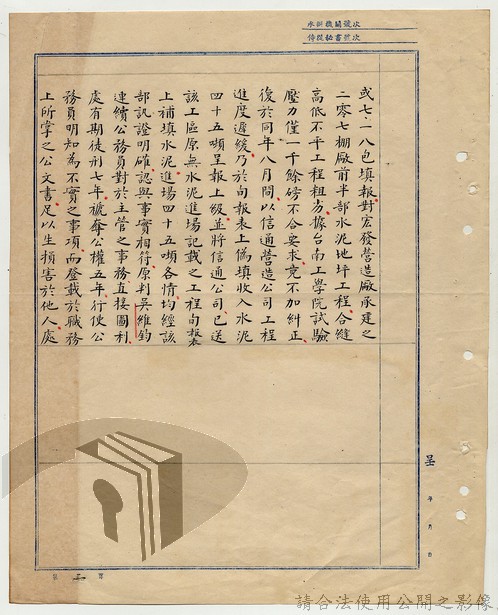 承辦機關號次
侍從秘書號次
或七·一八包填報對宏發營造廠承建之
二零七棚廠前半部水泥地坪工程合縫
高低不平工程粗劣據台南工學院試驗
壓力僅一千餘磅不合要求竟不加糾正
復於同年八月間以信通營造公司工程
進度遲緩乃於旬報表上偽填收入水泥
四十五噸呈報上級並將信通公司已送
該工區原無水泥進場記載之工程旬報表
上補填水泥進場四十五噸各情均經該
部訊證明確認與事實相符原判吳維鈞
連續公務員對於主管之事務直接圖利
處有期徒刑七年褫奪公權五年行使公
務員明知為不實之事項而登載於職務
上所掌之公文書足以生損害於他人處
呈
年 月 日
第 二 頁
請合法使用公開之影像